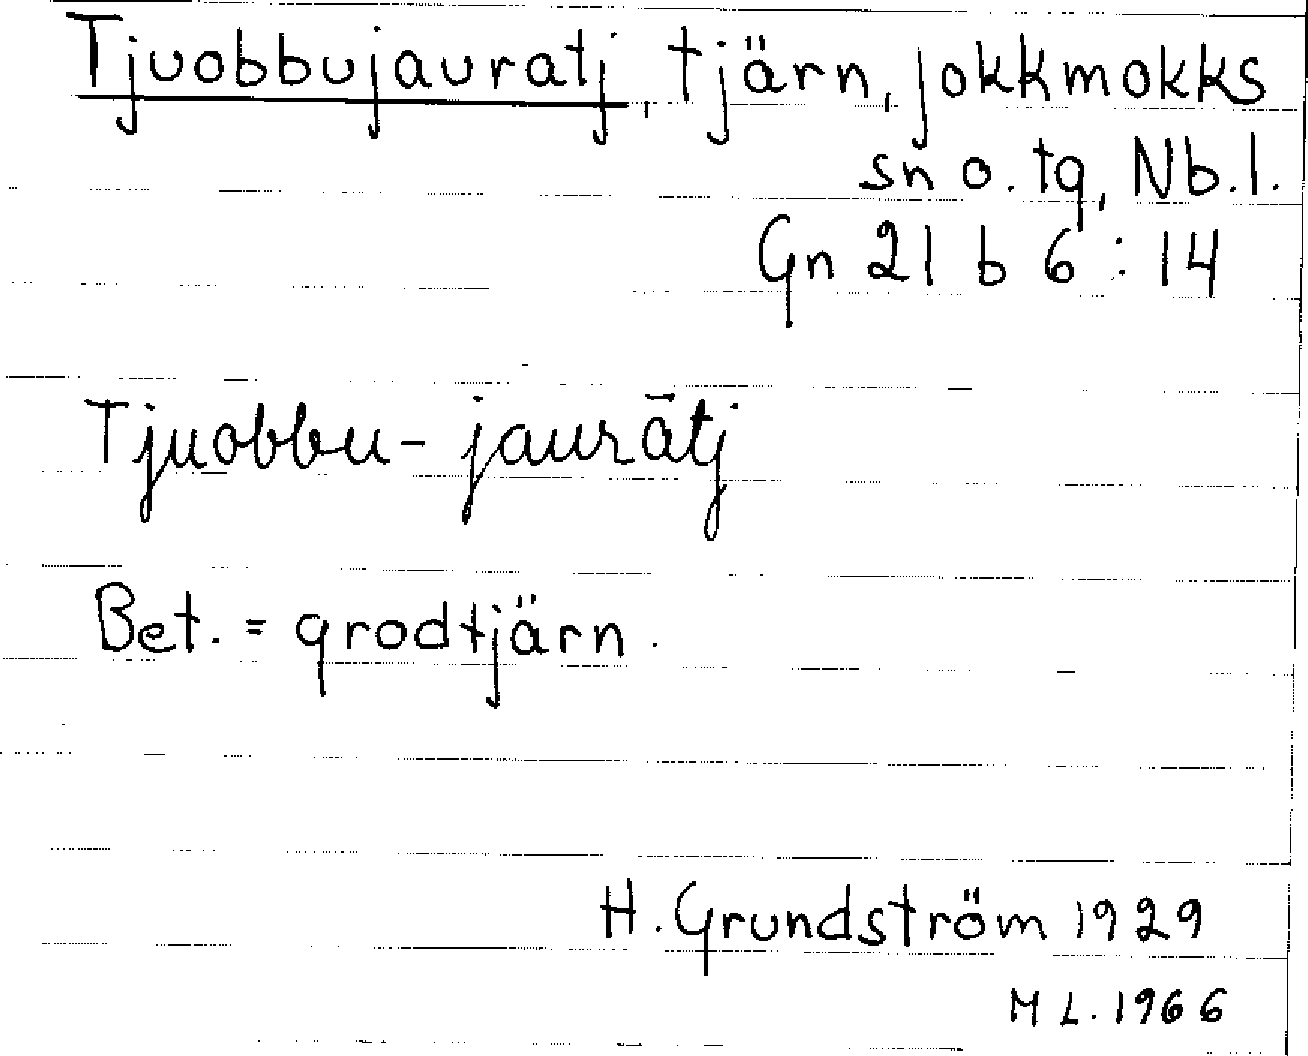 Tjuobbujauratj, tjärn, jokkmokks
sn o. tg, Nb.l.
Gn 21 b 6 : 14
Tjuobbu- jaurātj
Bet. = grodtjärn.
H. Grundström 1929
M L. 1966